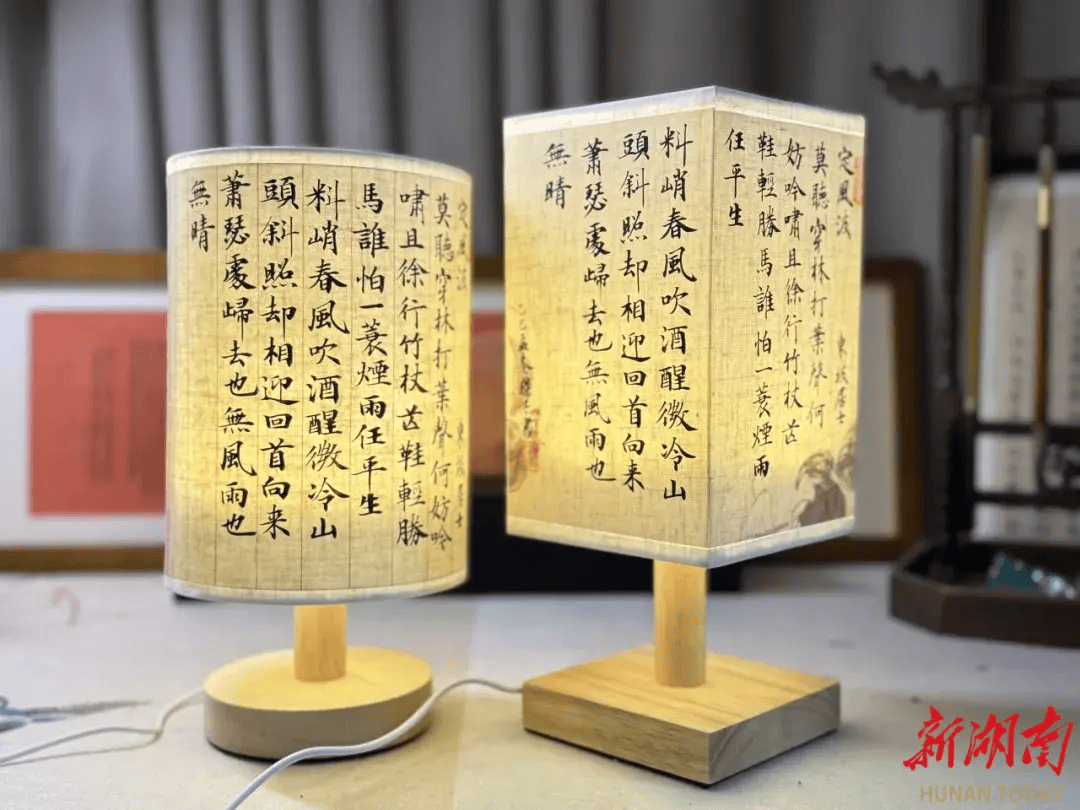 定風波 東坡居士
莫聽穿林打葉聲何妨吟
嘯且徐行竹杖芒鞋輕勝
馬誰怕一蓑煙雨任平生
料峭春風吹酒醒微冷山
頭斜照却相迎回首向来
蕭瑟處歸去也無風雨也
無晴
定風波 東坡居士
莫聽穿林打葉聲何
妨吟嘯且徐行竹杖芒
鞋輕勝馬誰怕一蓑煙雨
任平生
料峭春風吹酒醒微冷山
頭斜照却相迎回首向来
蕭瑟處歸去也無風雨也
無晴
乙巳
新湖南
HUNAN TODAY